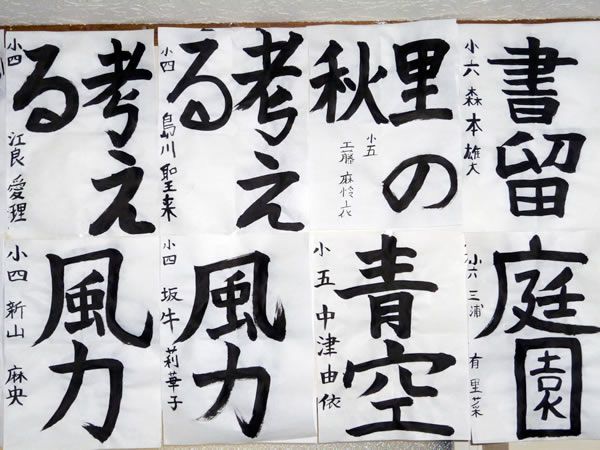 書留
小六 森本雄大
里の
秋
小五
工藤
考え
る
小四 島川聖来
考え
る
小四 江良愛理
庭園
小六 三浦 有里菜
青空
小五 中津由依
風力
小四 坂牛 莉華子
風力
小四 新山 麻央